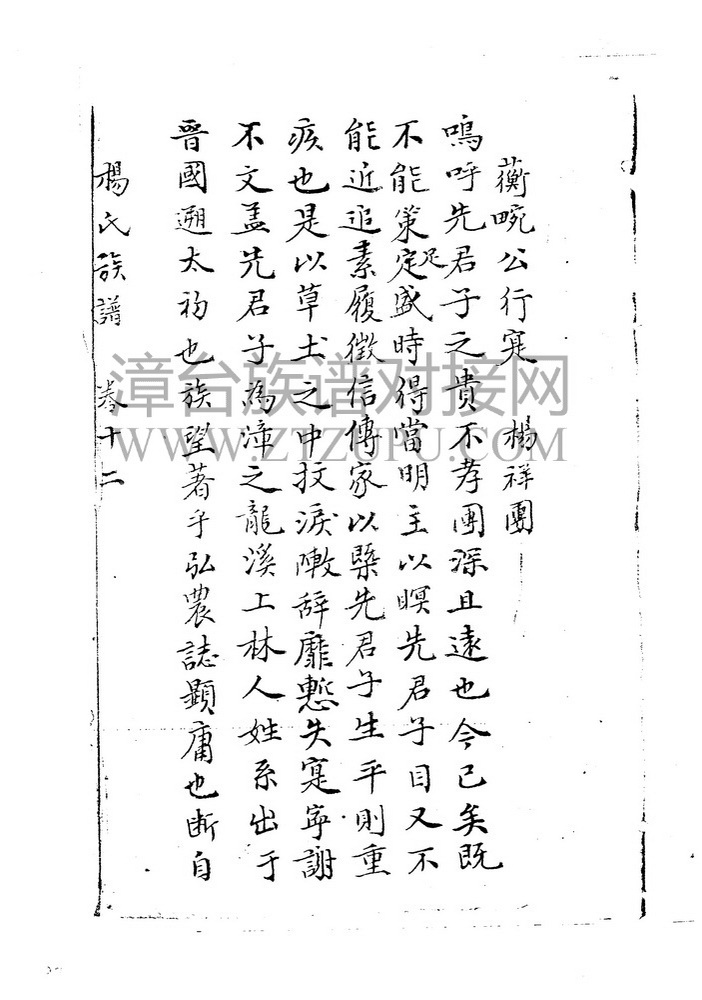 蘅畹公行寔 楊祥團
嗚呼先君子之貴不孝團深且遠也今已矣既
不能策足定盛時得當明主以暝先君子目又不
能近追素履徵信傳家以槩先君子生平則重
疚也是以草土之中抆淚陳辞靡慙失寔寜謝
不文盖先君子為漳之龍溪上林人姓系出于
晉國遡太初也族望著于弘農誌顯庸也断自
楊氏族譜 卷十二
漳台族谱对接网
WWW.ZTZUPU.COM